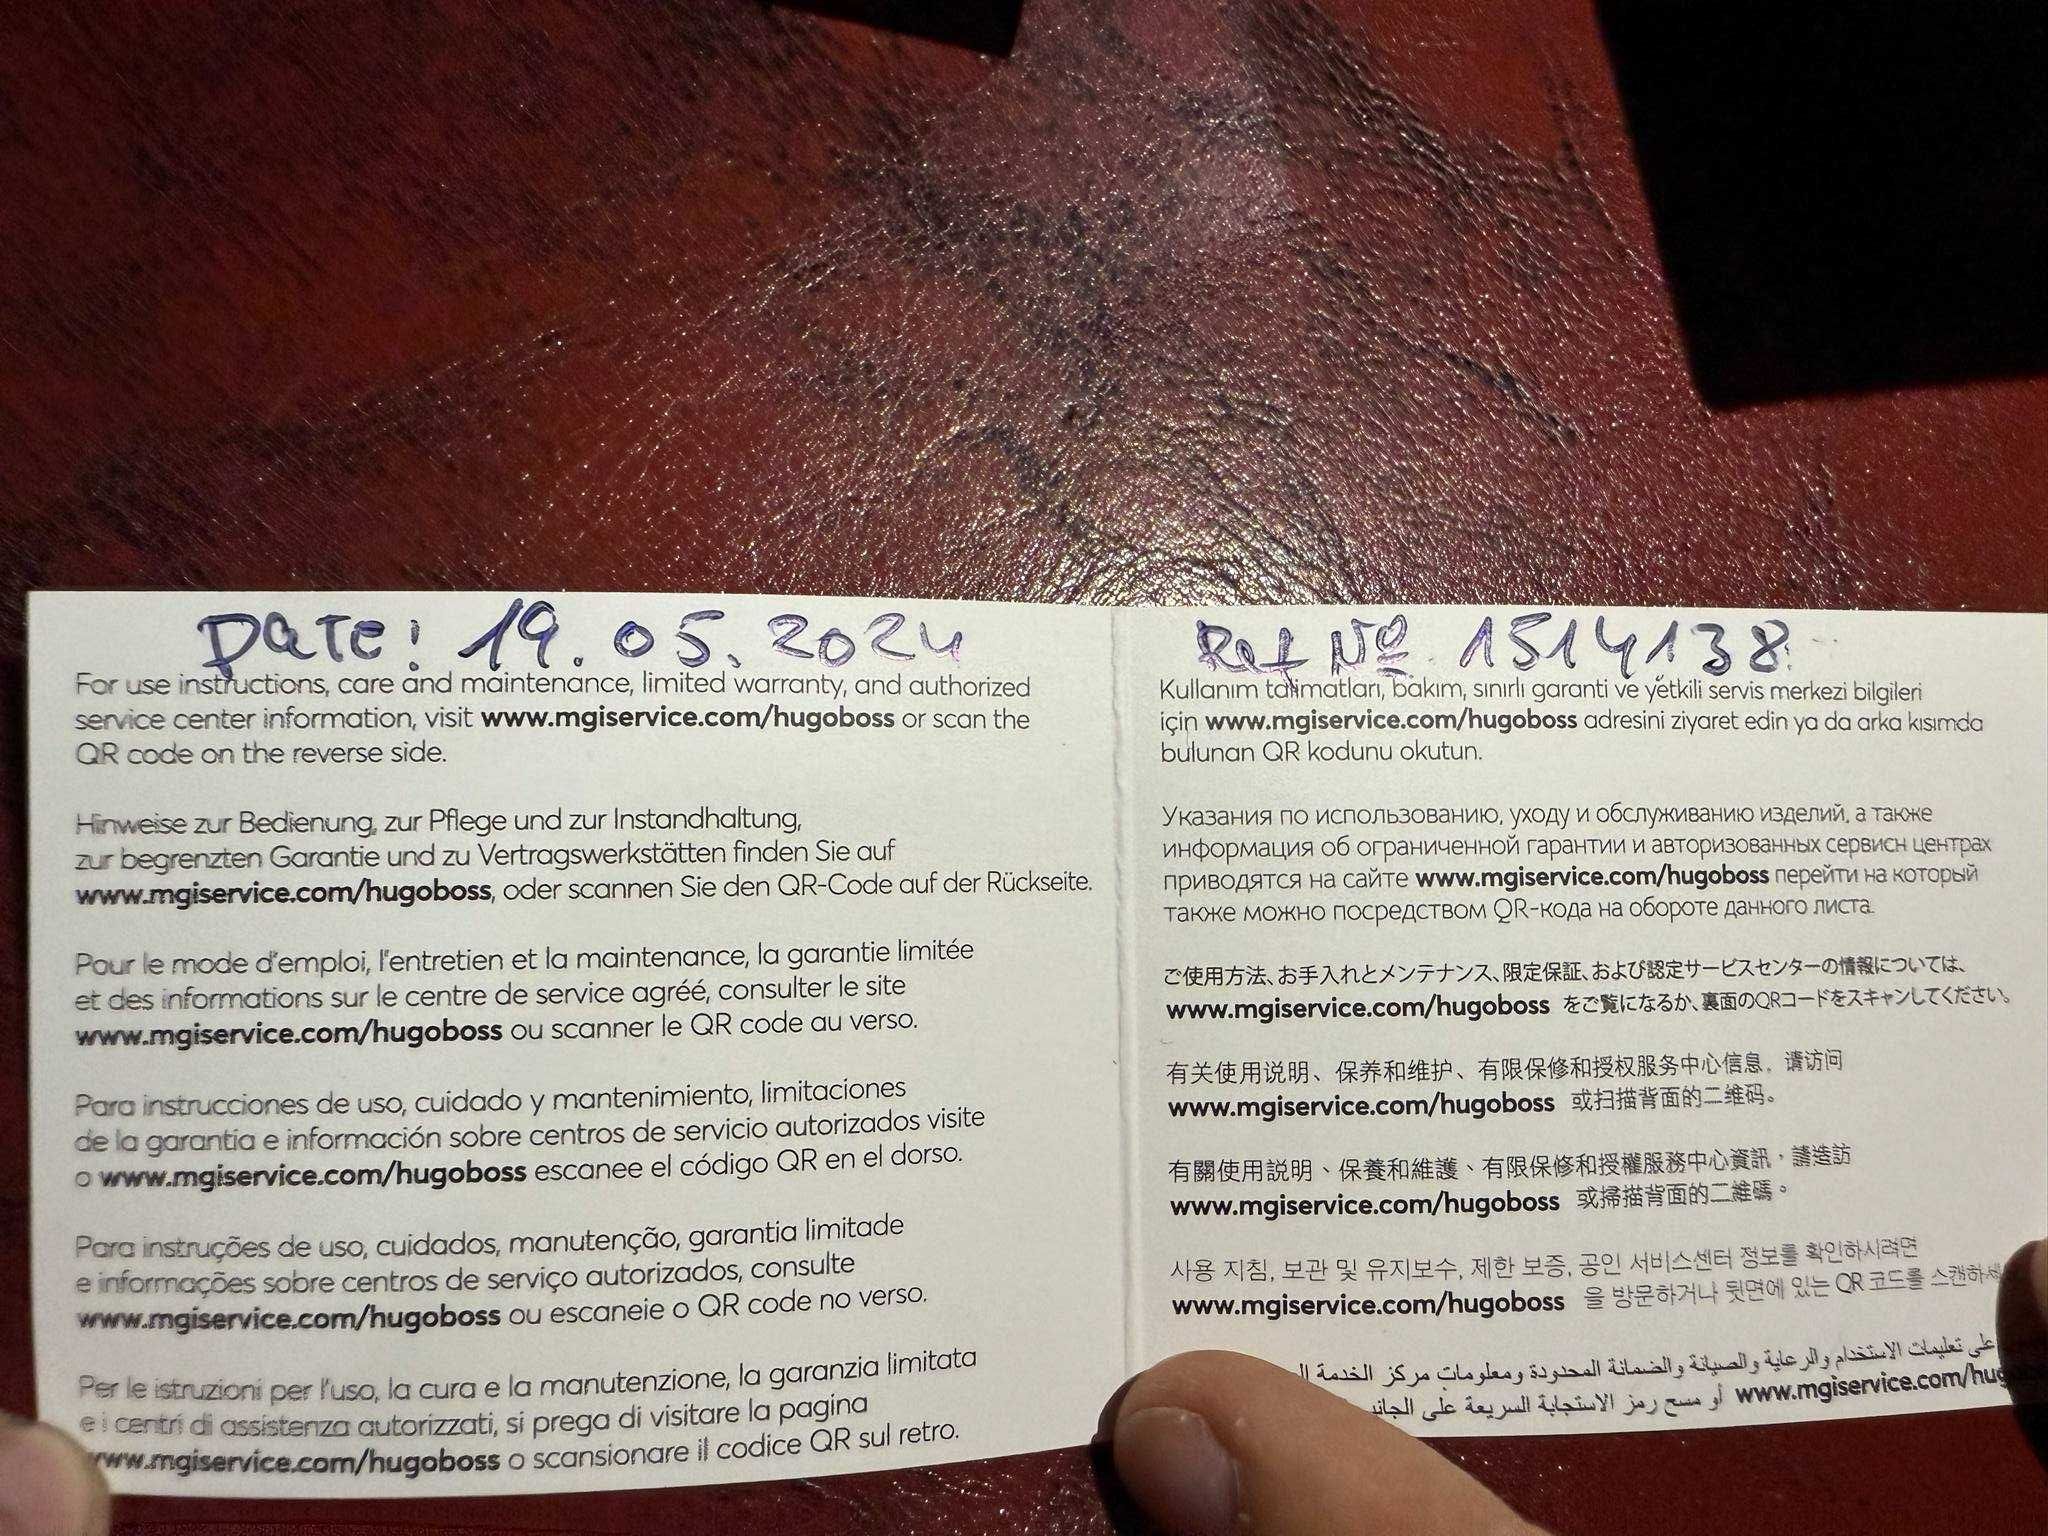 Date: 19.05.2024
For use instructions, care and maintenance, limited warranty, and authorized
service center information, visit www.mgiservice.com/hugoboss or scan the
QR code on the reverse side.
Hinweise zur Bedienung, zur Pflege und zur Instandhaltung,
zur begrenzten Garantie und zu Vertragswerkstätten finden Sie auf
www.mgiservice.com/hugoboss, oder scannen Sie den QR-Code auf der Rückseite.
Pour le mode d'emploi, l'entretien et la maintenance, la garantie limitée
et des informations sur le centre de service agréé, consulter le site
www.mgiservice.com/hugoboss ou scanner le QR code au verso.
Para instrucciones de uso, cuidado y mantenimiento, limitaciones
de la garantia e información sobre centros de servicio autorizados visite
o www.mgiservice.com/hugoboss escanee el código QR en el dorso.
Para instruções de uso, cuidados, manutenção, garantia limitade
e informações sobre centros de serviço autorizados, consulte
www.mgiservice.com/hugoboss ou escaneie o QR code no verso.
Per le istruzioni per l'uso, la cura e la manutenzione, la garanzia limitata
e i centri di assistenza autorizzati, si prega di visitare la pagina
www.mgiservice.com/hugoboss o scansionare il codice QR sul retro.
Ref № 1514138
Kullanım talimatları, bakım, sınırlı garanti ve yetkili servis merkezi bilgileri
için www.mgiservice.com/hugoboss adresini ziyaret edin ya da arka kısımda
bulunan QR kodunu okutun.
Указания по использованию, уходу и обслуживанию изделий, а также
информация об ограниченной гарантии и авторизованных сервисн центрах
приводятся на сайте www.mgiservice.com/hugoboss перейти на который
также можно посредством QR-кода на обороте данного листа.
ご使用方法、お手入れとメンテナンス、限定保証、および認定サービスセンターの情報については、
www.mgiservice.com/hugoboss をご覧になるか、裏面のQRコードをスキャンしてください。
有关使用说明、保养和维护、有限保修和授权服务中心信息，请访问
www.mgiservice.com/hugoboss 或扫描背面的二维码。
有關使用説明、保養和維護、有限保修和授權服務中心資訊，請造訪
www.mgiservice.com/hugoboss 或掃描背面的二維碼。
사용 지침, 보관 및 유지보수, 제한 보증, 공인 서비스센터 정보를 확인하시려면
www.mgiservice.com/hugoboss 을 방문하거나 뒷면에 있는 QR 코드를 스캔하세
على تعليمات الاستخدام والرعاية والصيانة والضمانة المحدودة ومعلومات مركز الخدمة
www.mgiservice.com/hug أو مسح رمز الاستجابة السريعة على الجانب